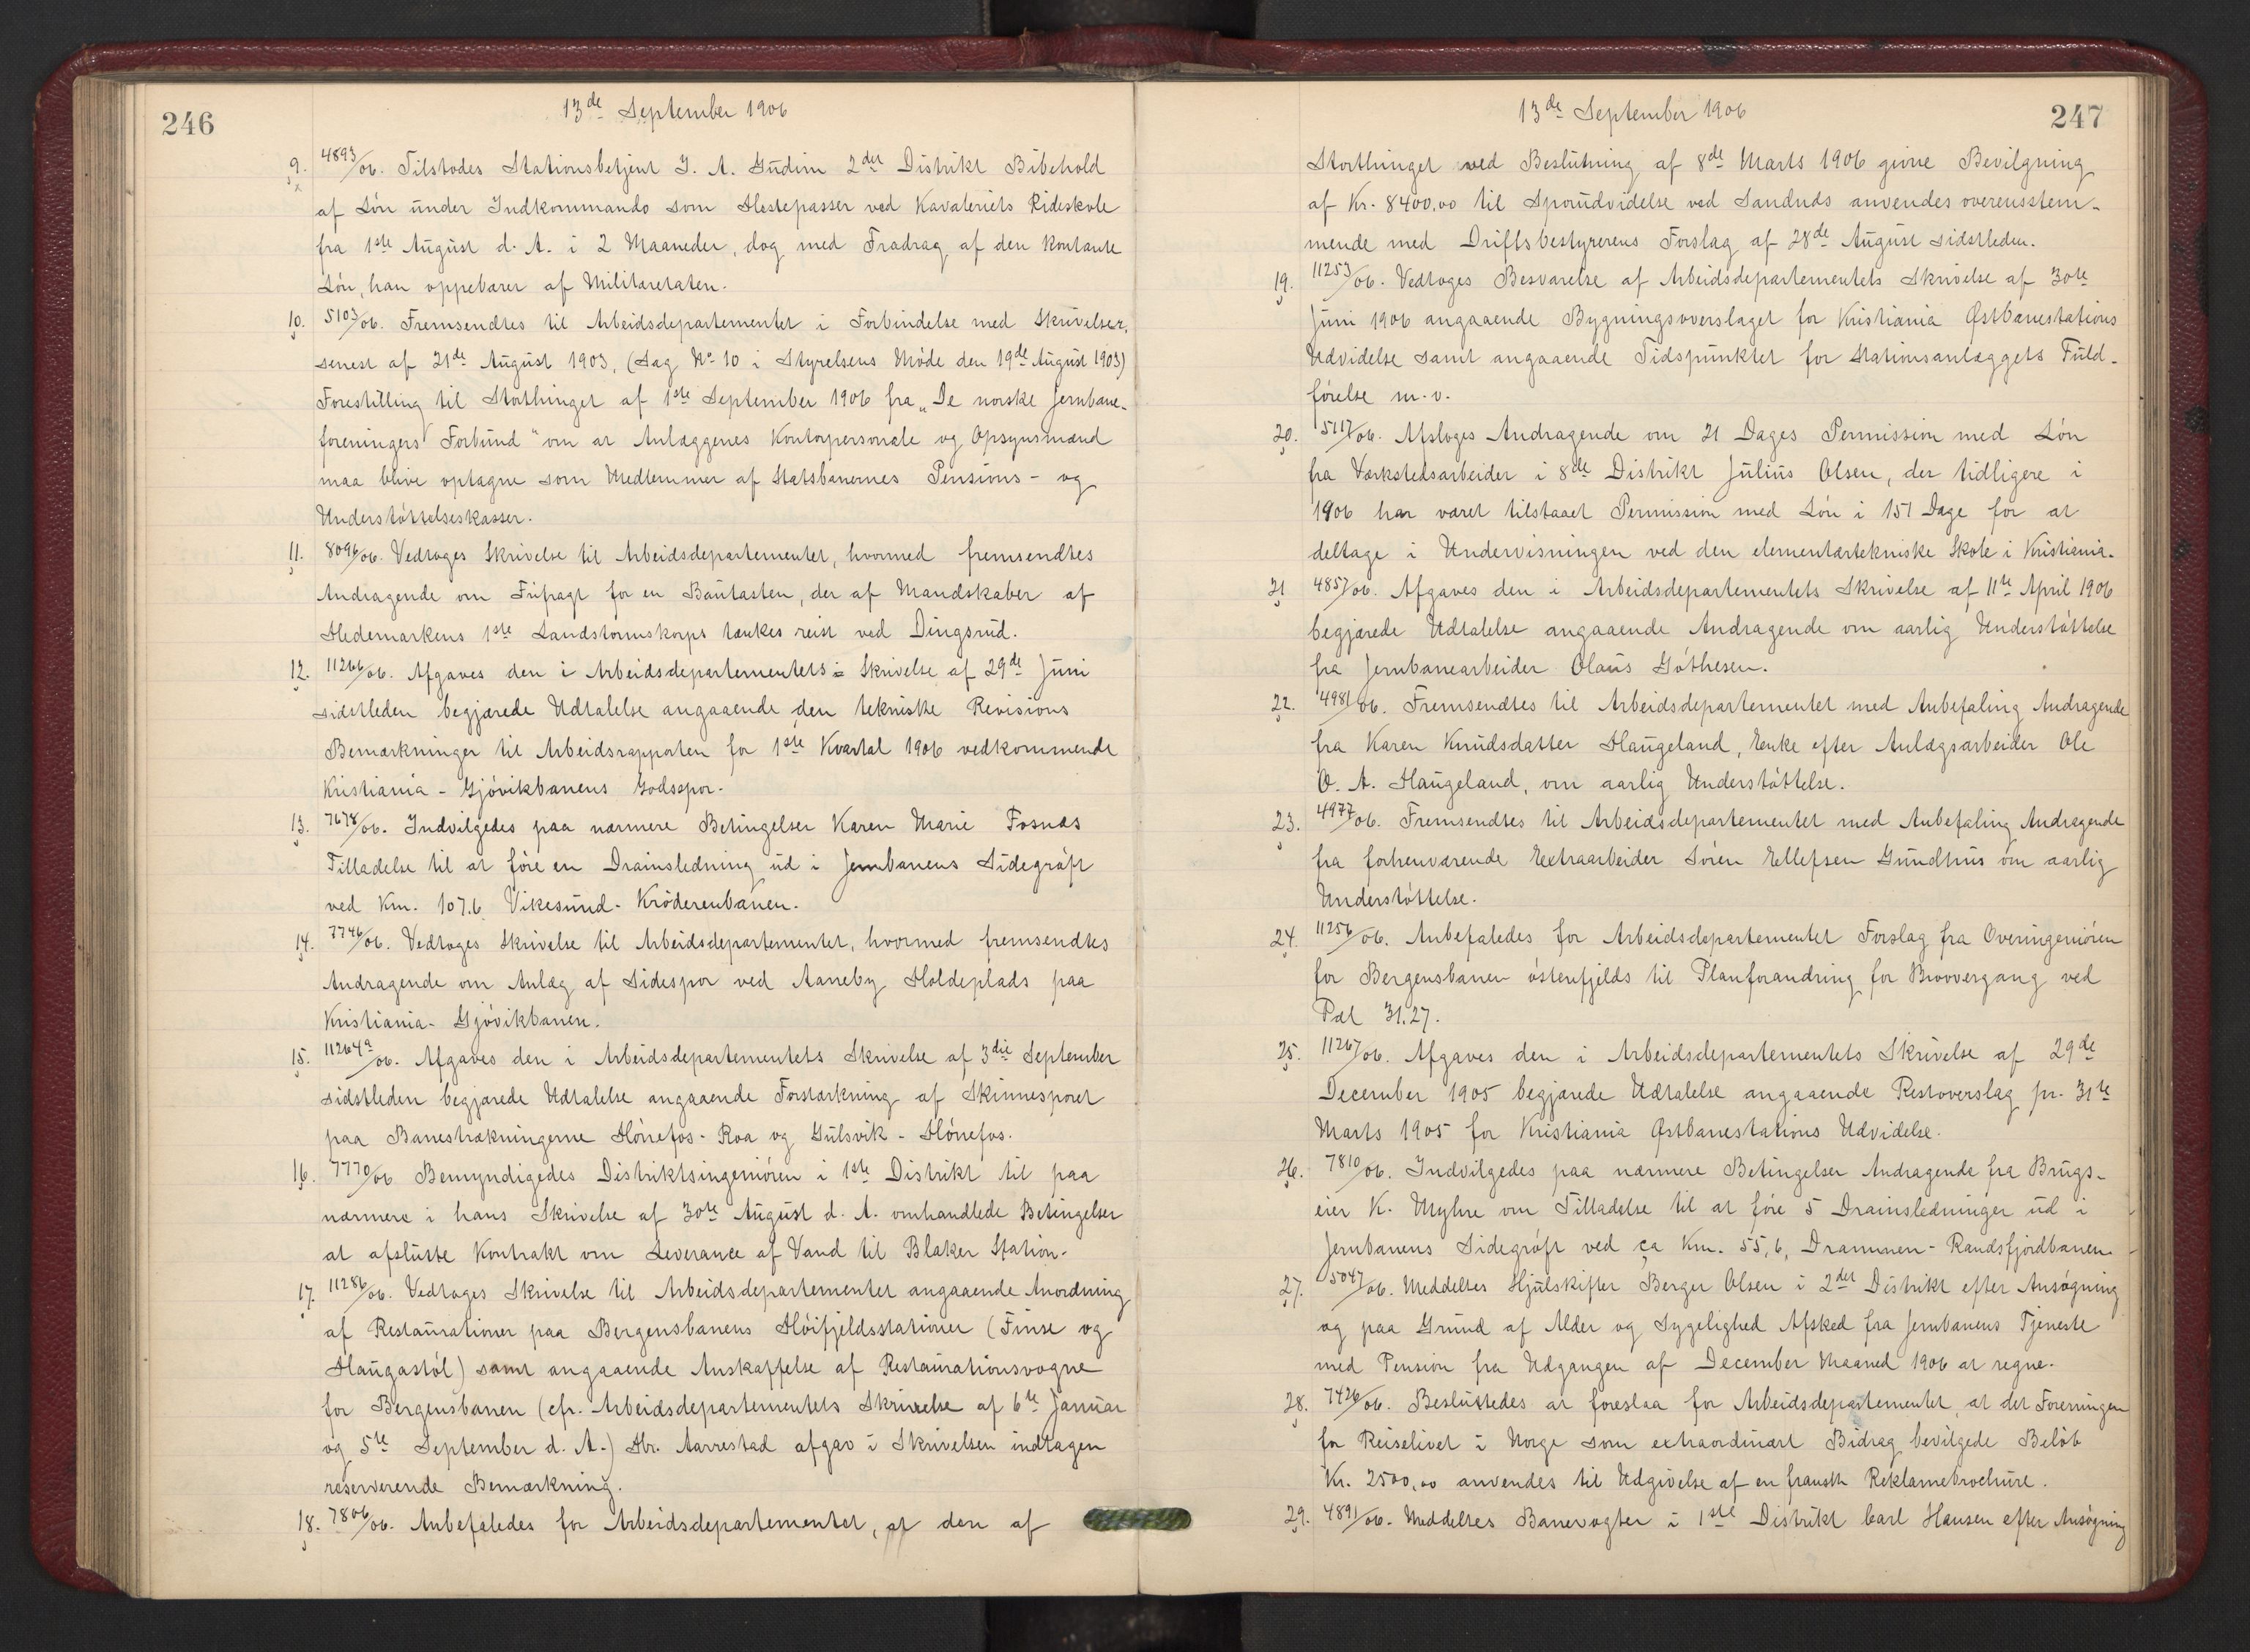 246
13de September 1906
9. 4893/06. Tilstodes Stationsbetjent J. A. Gudim 2det Distrikt Bibehold
af Lön under Indkommando som Hestepasser ved Kavaleriets Rideskole
fra 1ste August d. A. i 2 Maaneder, dog med Fradrag af den kontante
Lön, han oppebærer af Militæretaten.
10. 5103/06. Fremsendtes til Arbeidsdepartementet i Forbindelse med Skrivelser,
senest af 21de August 1903, (Sag No 10 i Styrelsens Möde den 19de August 1903)
Forestilling til Storthinget af 1ste September 1906 fra „De norske Jernbane-
foreningers Forbund" om at Anlæggenes Kontorpersonale og Opsynsmænd
maa blive optagne som Medlemmer af Statsbanernes Pensions- og
Understöttelseskasser.
11. 8096/06. Vedtoges Skrivelse til Arbeidsdepartementet, hvormed fremsendtes
Andragende om Frifragt for en Bautasten, der af Mandskaber af
Hedemarkens 1ste Landstormskorps tænkes reist ved Dingsrud.
12. 11266/06. Afgaves den i Arbeidsdepartementets Skrivelse af 29de Juni
sidstleden begjærede Udtalelse angaaende den tekniske Revisions
Bemærkninger til Arbeidsrapporten for 1ste Kvartal 1906 vedkommende
Kristiania - Gjövikbanens Godsspor.
13. 7678/06. Indvilgedes paa nærmere Betingelser Karen Marie Fosnæs
Tilladelse til at före en Drainsledning ud i Jernbanens Sidegröft
ved Km. 107.6 Vikesund - Kröderenbanen.
14. 7746/06. Vedtoges Skrivelse til Arbeidsdepartementet, hvormed fremsendtes
Andragende om Anlæg af Sidespor ved Aaneby Holdeplads paa
Kristiania - Gjövikbanen.
15. 11264a/06. Afgaves den i Arbeidsdepartementets Skrivelse af 3die September
sidstleden begjærede Udtalelse angaaende Forstærkning af Skinnesporet
paa Banestrækningerne Hönefos - Roa og Gulsvik - Hönefos.
16. 7770/06 Bemyndigedes Distriktsingeniören i 1ste Distrikt til paa
nærmere i hans Skrivelse af 30te August d. A. omhandlede Betingelser
at afslutte Kontrakt om Leverance af Vand til Blaker Station.
17. 11286/06. Vedtoges Skrivelse til Arbeidsdepartementet angaaende Anordning
af Restaurationer paa Bergensbanens Höifjeldsstationer (Finse og
Haugastöl) samt angaaende Anskaffelse af Restaurationsvogne
for Bergensbanen (cfr. Arbeidsdepartementets Skrivelse af 6te Januar
og 5te September d. A.) Hr. Aarrestad afgav i Skrivelsen indtagen
reserverende Bemærkning.
18. 7806/06. Anbefaledes for Arbeidsdepartementet, at den af
13de September 1906
247
Storthinget ved Beslutning af 8de Marts 1906 givne Bevilgning
af Kr. 8400,00 til Sporudvidelse ved Sandnes anvendes overensstem-
mende med Driftsbestyrerens Forslag af 28de August sidstleden.
19. 11253/06. Vedtoges Besvarelse af Arbeidsdepartementets Skrivelse af 30te
Juni 1906 angaaende Bygningsoverslaget for Kristiania Østbanestations
Udvidelse samt angaaende Tidspunktet for Stationsanlæggets Fuld-
förelse m.v.
20. 5117/06. Afsloges Andragende om 21 Dages Permission med Lön
fra Værkstedsarbeider i 8de Distrikt Julius Olsen, der tidligere i
1906 har været tilstaaet Permission med Lön i 151 Dage for at
deltage i Undervisningen ved den elementærtekniske Skole i Kristiania.
21 4857/06. Afgaves den i Arbeidsdepartementets Skrivelse af 11te April 1906
begjærede Udtalelse angaaende Andragende om aarlig Understöttelse
fra Jernbanearbeider Olaus Göthesen.
22. 4981/06. Fremsendtes til Arbeidsdepartementet med Anbefaling Andragende
fra Karen Knudsdatter Haugeland, Enke efter Anlægsarbeider Ole
O. A. Haugeland, om aarlig Understöttelse.
23. 4977/06. Fremsendtes til Arbeidsdepartementet med Anbefaling Andragende
fra forhenværende Extraarbeider Sören Ellefsen Gundhus om aarlig
Understöttelse.
24. 11256/06. Anbefaledes for Arbeidsdepartementet Forslag fra Overingeniören
for Bergensbanen östenfjelds til Planforandring for Broovergang ved
Pæl 31.27.
25. 11267/06. Afgaves den i Arbeidsdepartementets Skrivelse af 29de
December 1905 begjærede Udtalelse angaaende Restoverslag pr. 31te
Marts 1905 for Kristiania Østbanestations Udvidelse.
26. 7810/06. Indvilgedes paa nærmere Betingelser Andragende fra Brugs-
eier K. Myhre om Tilladelse til at före 5 Drainsledninger ud i
Jernbanens Sidegröft ved ca Km. 55,6, Drammen - Randsfjordbanen.
27. 5047/06. Meddeltes Hjulskifter Berger Olsen i 2det Distrikt efter Ansögning
og paa Grund af Alder og Sygelighed Afsked fra Jernbanens Tjeneste
med Pension fra Udgangen af December Maaned 1906 at regne.
28. 7426/06. Besluttedes at foreslaa for Arbeidsdepartementet, at det Foreningen
for Reiselivet i Norge som extraordinært Bidrag bevilgede Belöb
Kr. 2500,00 anvendes til Udgivelse af en fransk Reklamebrochure.
29. 4891/06. Meddeltes Banevogter i 1ste Distrikt Carl Hansen efter Ansögning